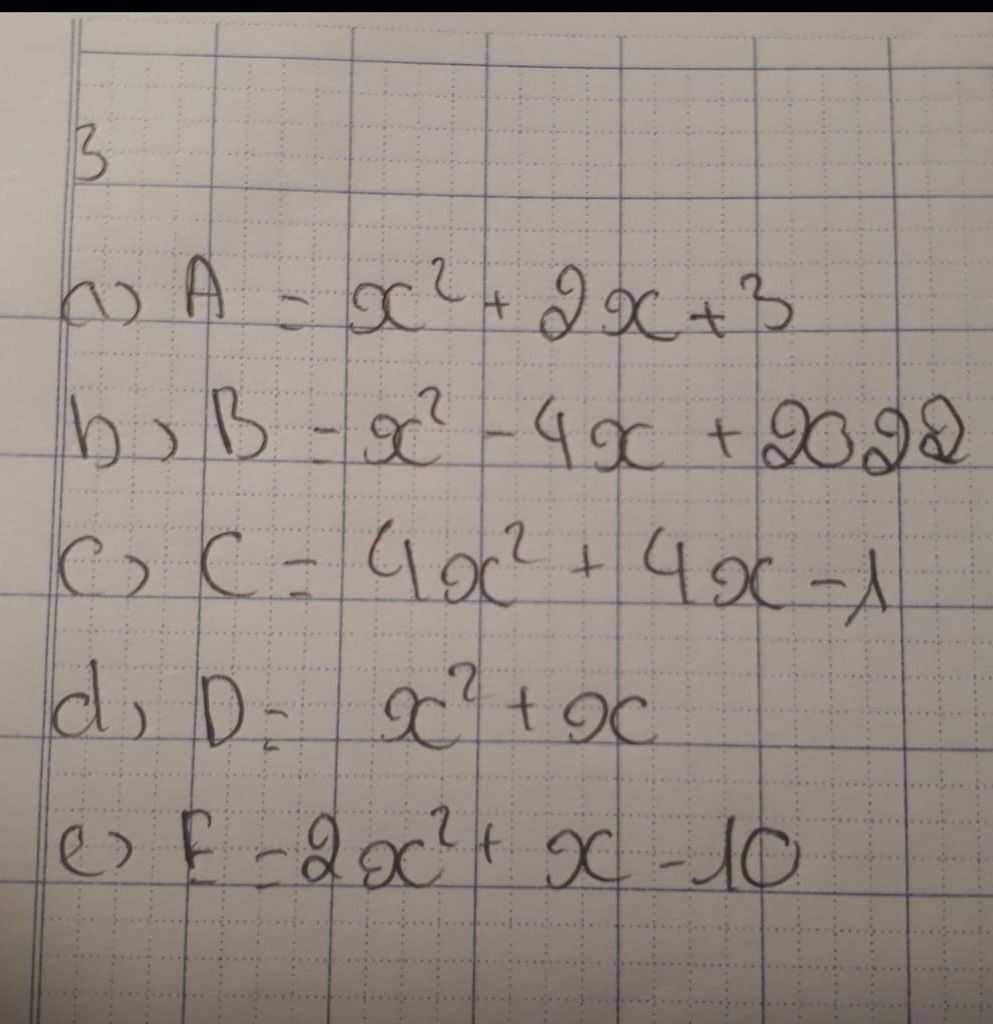 3
a) A = x² + 2x + 3
b) B = x² - 4x + 2022
c) C = 4x² + 4x - 1
d) D = x² + x
e) E = 2x² + x - 10